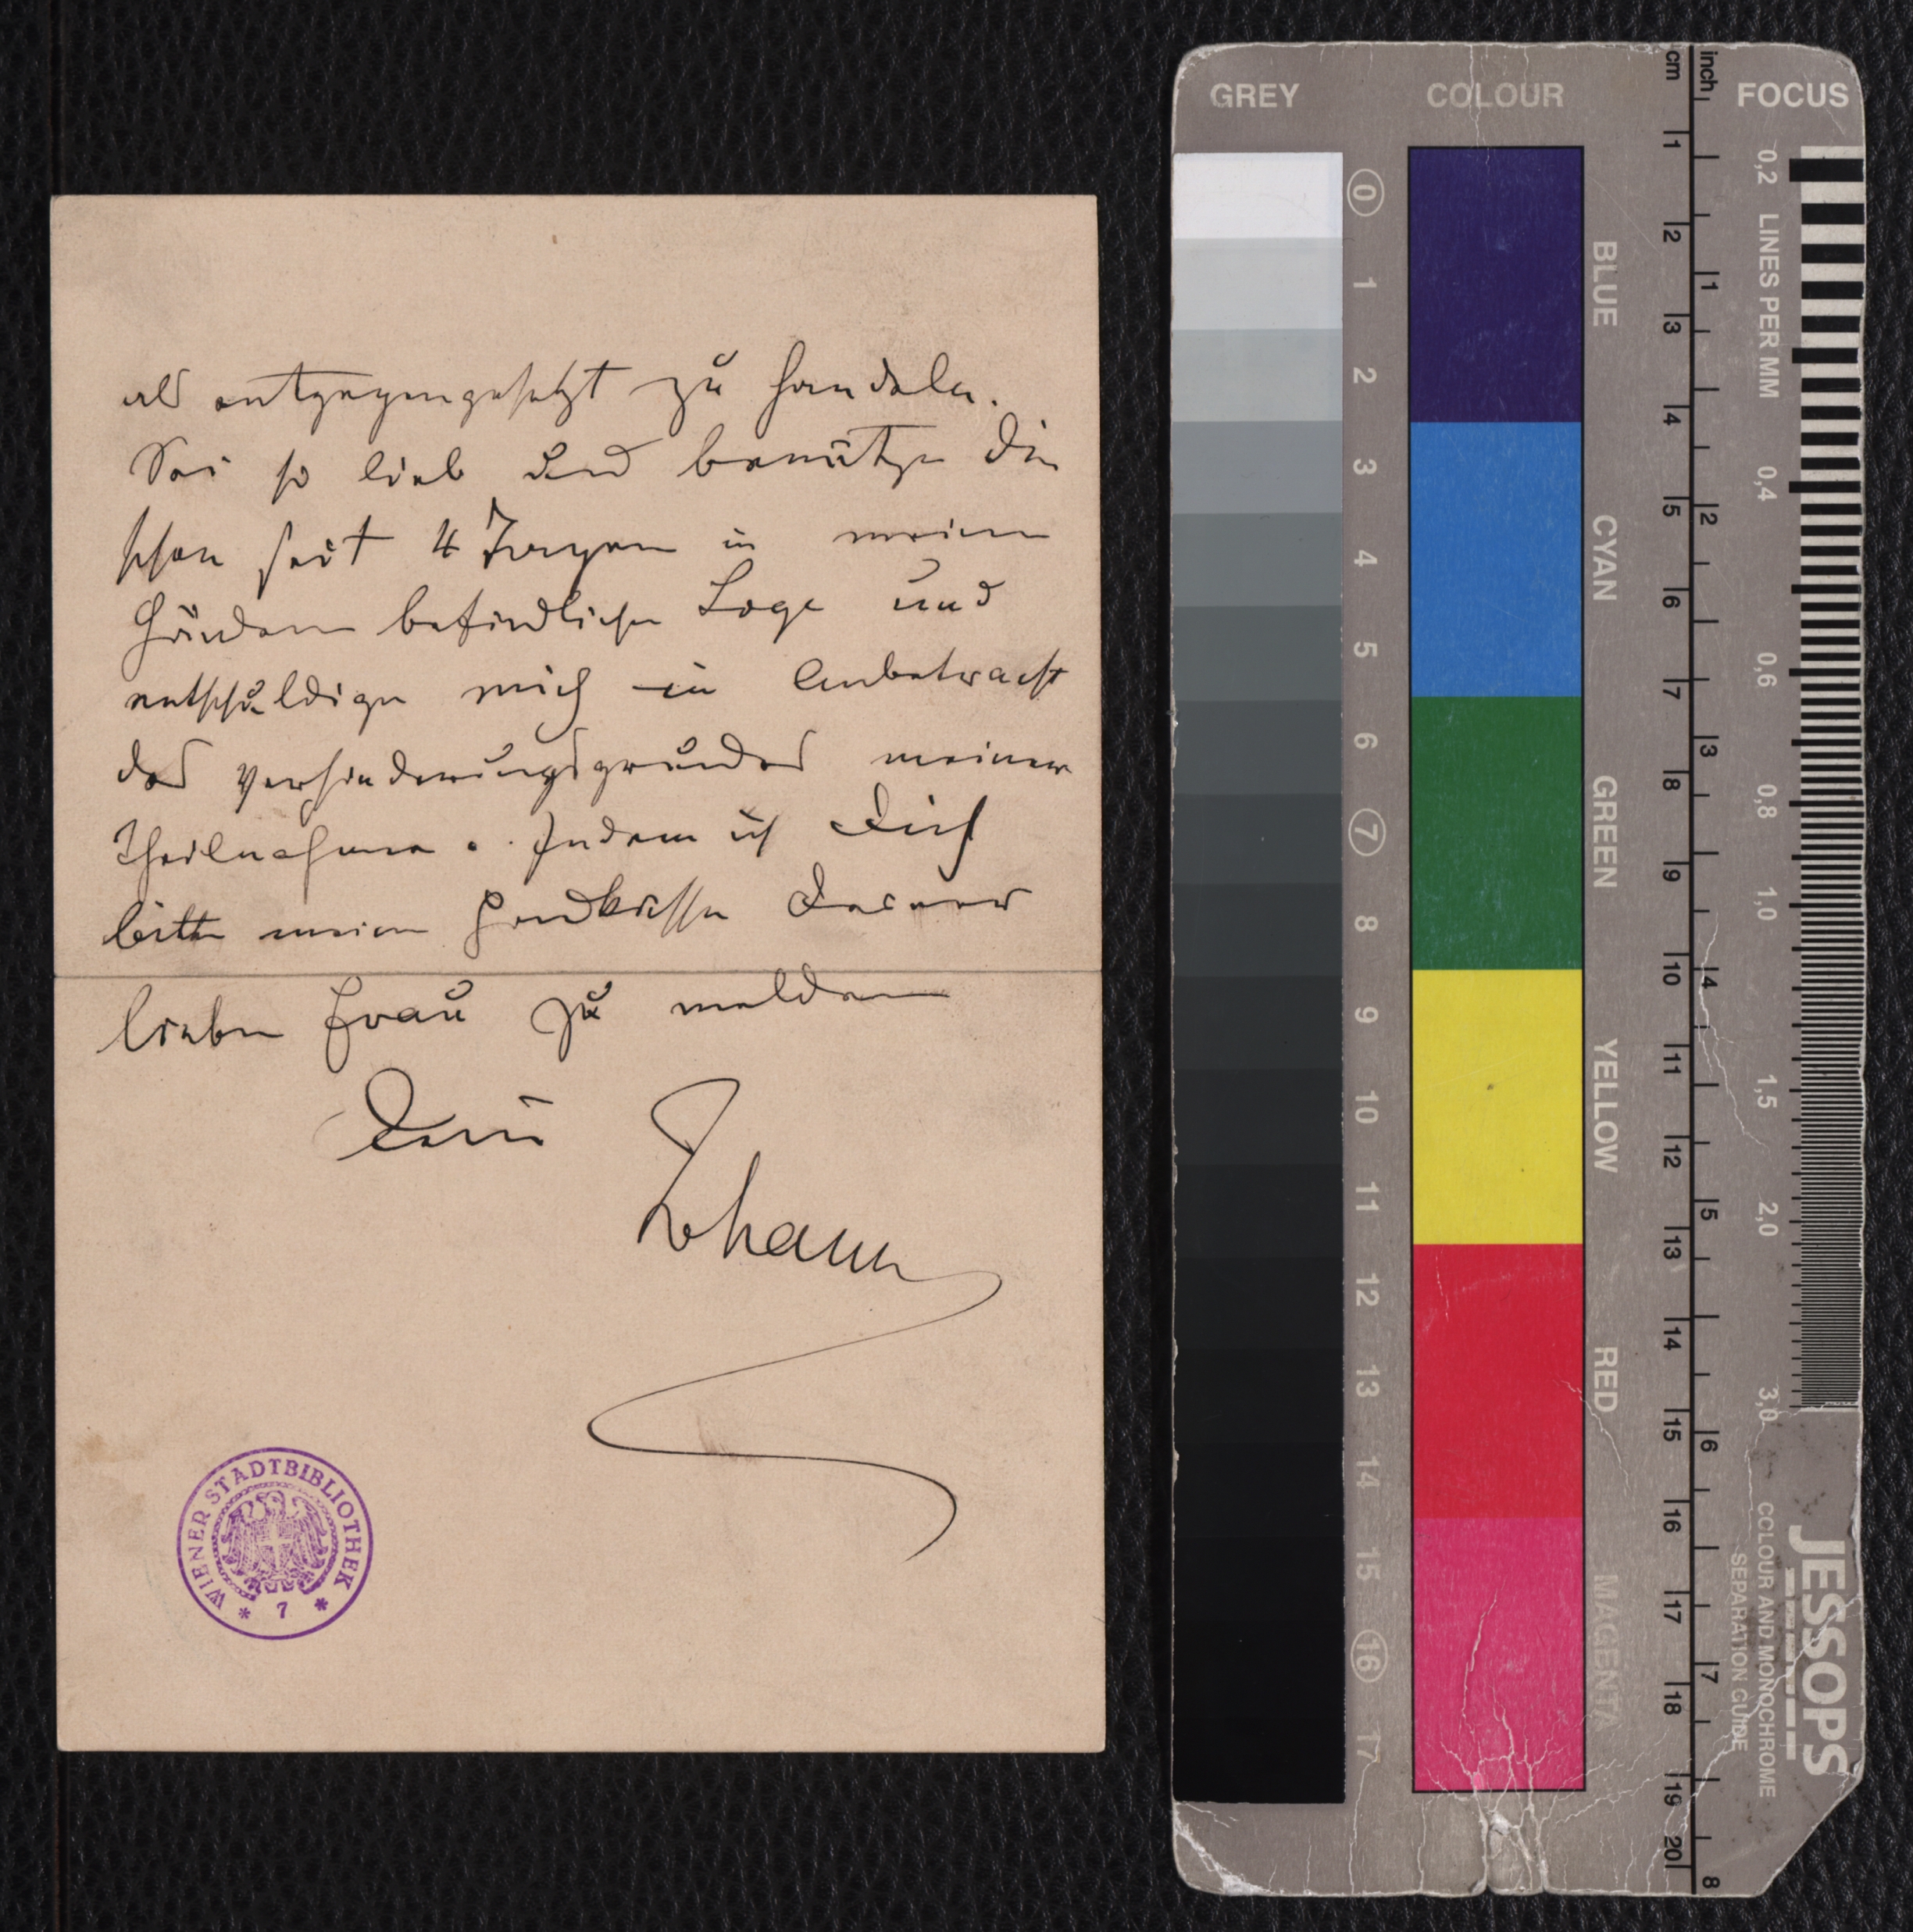 als entgegengesetzt zu handeln.
Sei so lieb und benütze die
schon seit 4 Tagen in meinen
Händen befindliche Loge und
entschuldige mich in Anbetracht
des Verhinderungsgrundes meiner
Theilnahme. Indem ich Dich
bitte meine Handküsse Deiner
lieben Frau zu melden
Dein
Johann
WIENER STADTBIBLIOTHEK
* 7 *
GREY COLOUR cm inch FOCUS
0 1 2 3 4 5 6 7 8 9 10 11 12 13 14 15 16 17
BLUE
CYAN
GREEN
YELLOW
RED
MAGENTA
1 2 3 4 5 6 7 8 9 10 11 12 13 14 15 16 17 18 19 20
1 2 3 4 5 6 7 8
0,2 LINES PER MM 0,4 0,6 0,8 1,0 1,5 2,0 3,0
JESSOPS
COLOUR AND MONOCHROME
SEPARATION GUIDE